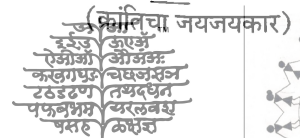 (क्रांतिचा जयजयकार)
ऐओऔ अंअः
कखगघङ चछजझञ
टठडढण तथदधन
पफबभम यरलवश
षसह ळक्षज्ञ